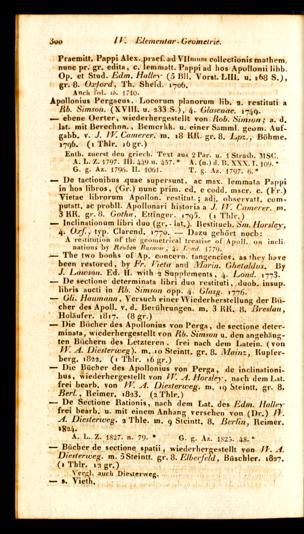 300 IV. Elementar-Geometrie.
Praemitt. Pappi Alex. praef. ad VIImum collectionis mathem.
nunc pr. gr. edita, c. lemmatt. Pappi ad hos Apollonii libb.
Op. et Stud. Edm. Halley (5 Bll. Vorst. LIII. u. 168 S.),
gr. 8. Oxford, Th. Sheld. 1706.
Auch Inl. ib. 1710.
Apollonius Pergaeus. Locorum planorum lib. 2. restituti a
Rb. Simson. (XVIII. u. 233 S.), 4. Glascuae, 1749.
— ebene Oerter, wiederhergestellt von Rob. Simson; a. d.
lat. mit Berechnn., Bemerkk. u. einer Samml. geom. Auf-
gabb. v. J. W. Camerer. m. 18 KK. gr. 8. Lpz., Böhme.
1796. (1 Thlr. 16 gr.)
Enth. zuerst den griech. Text aus 2 Par. u. 1 Strasb. MSC.
A. L. Z. 1797. III. 449 u. 457. * A. (n.) d. B. XXXI. 109. *
G. g. Az. 1796. II. 1061. T. g. Az. 1797. 6. *
— De tactionibus quae supersunt, ac max. lemmata Pappi
in hos libros, (Gr.) nunc prim. ed. e codd. mscr. c. (Fr.)
Vietae librorum Apollon. restitut.; adj. observatt. com-
putatt. ac probll. Apolloniani historia a J. W. Camerer. m.
3 KK. gr. 8. Gotha, Ettinger. 1795. (1 Thlr.)
— Inclinationum libri duo (gr. - lat.). Restitueb. Sm. Horsley,
4. Oxf., typ. Clarend. 1770. — Dazu gehört noch:
A restitution of the geometrical treatise of Apoll. on incli-
nations by Reuben Burrow; 4. Lond. 1779.
— The two books of Ap. concern. tangencies, as they have
been restored, by Fr. Vieta and Marin. Ghetaldus, By
J. Lawson. Ed. II. with 2 Supplements, 4. Lond. 1773.
— De sectione determinata libri duo restituti, duob. insup.
libris aucti in Rb. Simson opp. 4. Glasg. 1776.
— Gli. Haumann, Versuch einer Wiederherstellung der Bü-
cher des Apoll. v. d. Berührungen. m. 3 KK. 8. Breslau,
Holäufer. 1817. (8 gr.)
— Die Bücher des Apollonius von Perga, de sectione deter-
minata, wiederhergestellt von Rb. Simson u. den angehäng-
ten Büchern des Letzteren. frei nach dem Latein. (von
W. A. Diesterweg). m. 10 Steintt. gr. 8. Mainz, Kupfer-
berg. 1822. (1 Thlr. 16 gr.)
— Die Bücher des Apollonius von Perga, de inclinationi-
bus, wiederhergestellt von W. A. Horsley, nach dem Lat.
frei bearb. von W. A. Diesterweg. m. 19 Steintt. gr. 8.
Berl., Reimer. 1823. (2 Thlr.)
— De Sectione Rationis, nach dem Lat. des Edm. Halley
frei bearb. u. mit einem Anhang versehen von (Dr.) W.
A. Diesterweg. 2 Thle. m. 9 Steintt. 8. Berlin, Reimer.
1824.
A. L. Z. 1827. n. 79. * G. g. Az. 1825. 48. *
— Bücher de sectione spatii, wiederhergestellt von W. A.
Diesterweg. m. 5 Steintt. gr. 8. Elberfeld, Büschler. 1827.
(1 Thlr. 12 gr.)
Vergl. auch Diesterweg.
— s. Vieth.